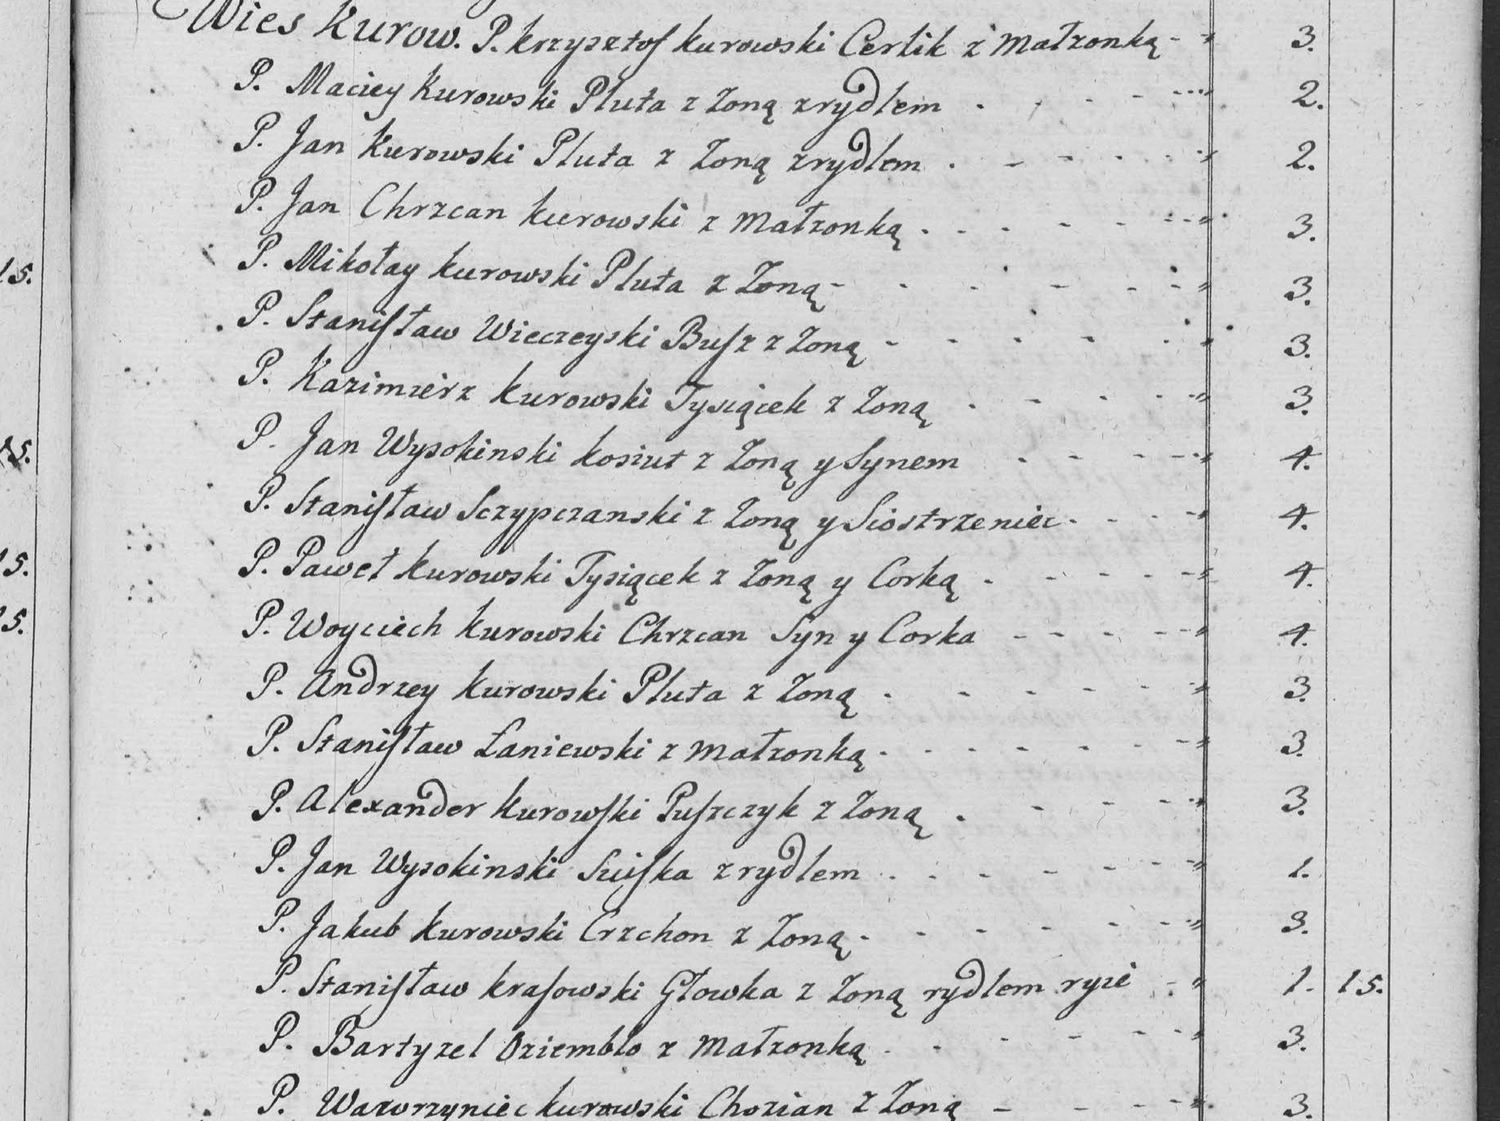 Wies Kurow. P. Krzysztof Kurowski Certik z Małzonką - " 3.
P. Maciey Kurowski Pluta z Zoną z rydlem . . - - ... 2.
P. Jan Kurowski Pluta z Zoną z rydlem . - - - . . " 2.
P. Jan Chrzcan Kurowski z Małzonką . . . - - - - " 3.
15. P. Mikołay Kurowski Pluta z Zoną - . . - - - " 3.
P. Stanisław Wieczeyski Busz z Zoną - - - - . " 3.
P. Kazimierz Kurowski Tysiącek z Zoną . - - - - " 3.
15. P. Jan Wysokinski Kosiut z Zoną y Synem . - - - - " 4.
P. Stanisław Sczypczanski z Zoną y Siostrzeniec . - - - " 4.
15. P. Paweł Kurowski Tysiącek z Zoną y Corką - - - - - " 4.
15. P. Woyciech Kurowski Chrzcan Syn y Corka - - - - - " 4.
P. Andrzey Kurowski Pluta z Zoną . - - - - - " 3.
P. Stanisław Łaniewski z Małzonką . - - - - - - " 3.
P. Alexander Kurowski Puszczyk z Zoną . - - - - " 3.
P. Jan Wysokinski z rydlem . . - - - - " 1.
P. Jakub Kurowski Crzchon z Zoną . - - - - - " 3.
P. Stanisław Krasowski Głowka z Zoną rydlem ryie - " 1. 15.
P. Bartyzel Oziembło z Małzonką . . - - - - - " 3.
P. Wawrzyniec Kurowski Chozian z Zoną - - - - " 3.